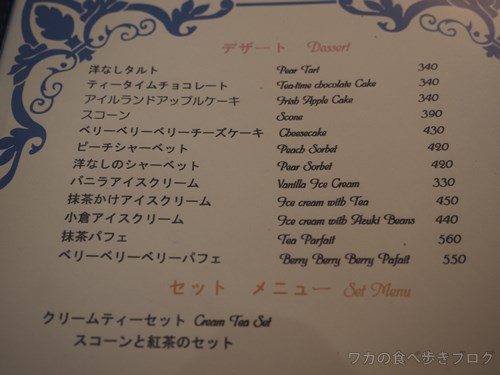 デザート Dessert
洋なしタルト Pear Tart 340
ティータイムチョコレート Tea-time chocolate Cake 340
アイルランドアップルケーキ Irish Apple Cake 340
スコーン Scone 390
ベリーベリーベリーチーズケーキ Cheesecake 430
ピーチシャーベット Peach Sorbet 420
洋なしのシャーベット Pear Sorbet 420
バニラアイスクリーム Vanilla Ice Cream 330
抹茶かけアイスクリーム Ice cream with Tea 450
小倉アイスクリーム Ice cream with Azuki Beans 440
抹茶パフェ Tea Parfait 560
ベリーベリーベリーパフェ Berry Berry Berry Pafait 550
セット メニュー Set Menu
クリームティーセット Cream Tea Set
スコーンと紅茶のセット
ワカの食べ歩きブログ